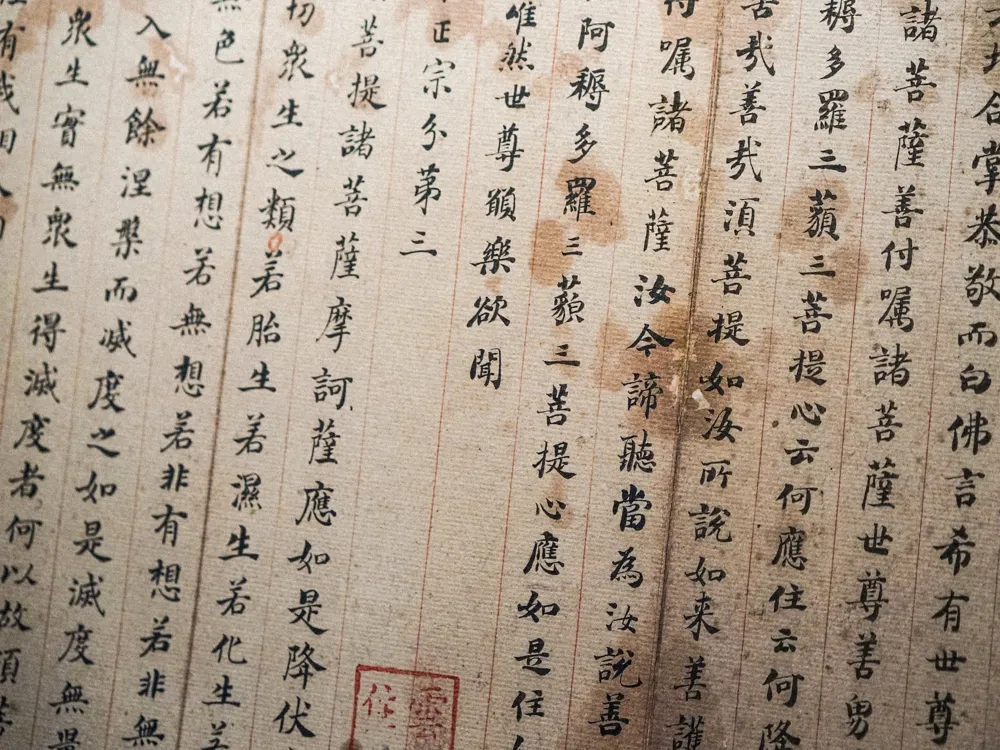 地合掌恭敬而白佛言希有世尊
諸菩薩善付囑諸菩薩世尊善男
耨多羅三藐三菩提心云何應住云何降
善哉善哉須菩提如汝所說如来善護
付囑諸菩薩汝今諦聽當為汝說善
阿耨多羅三藐三菩提心應如是住
唯然世尊願樂欲聞
正宗分第三
菩提諸菩薩摩訶薩應如是降伏
切衆生之類若胎生若濕生若化生若
無色若有想若無想若非有想若非無
入無餘涅槃而滅度之如是滅度無量
衆生實無衆生得滅度者何以故須菩
有我相人
雲
住